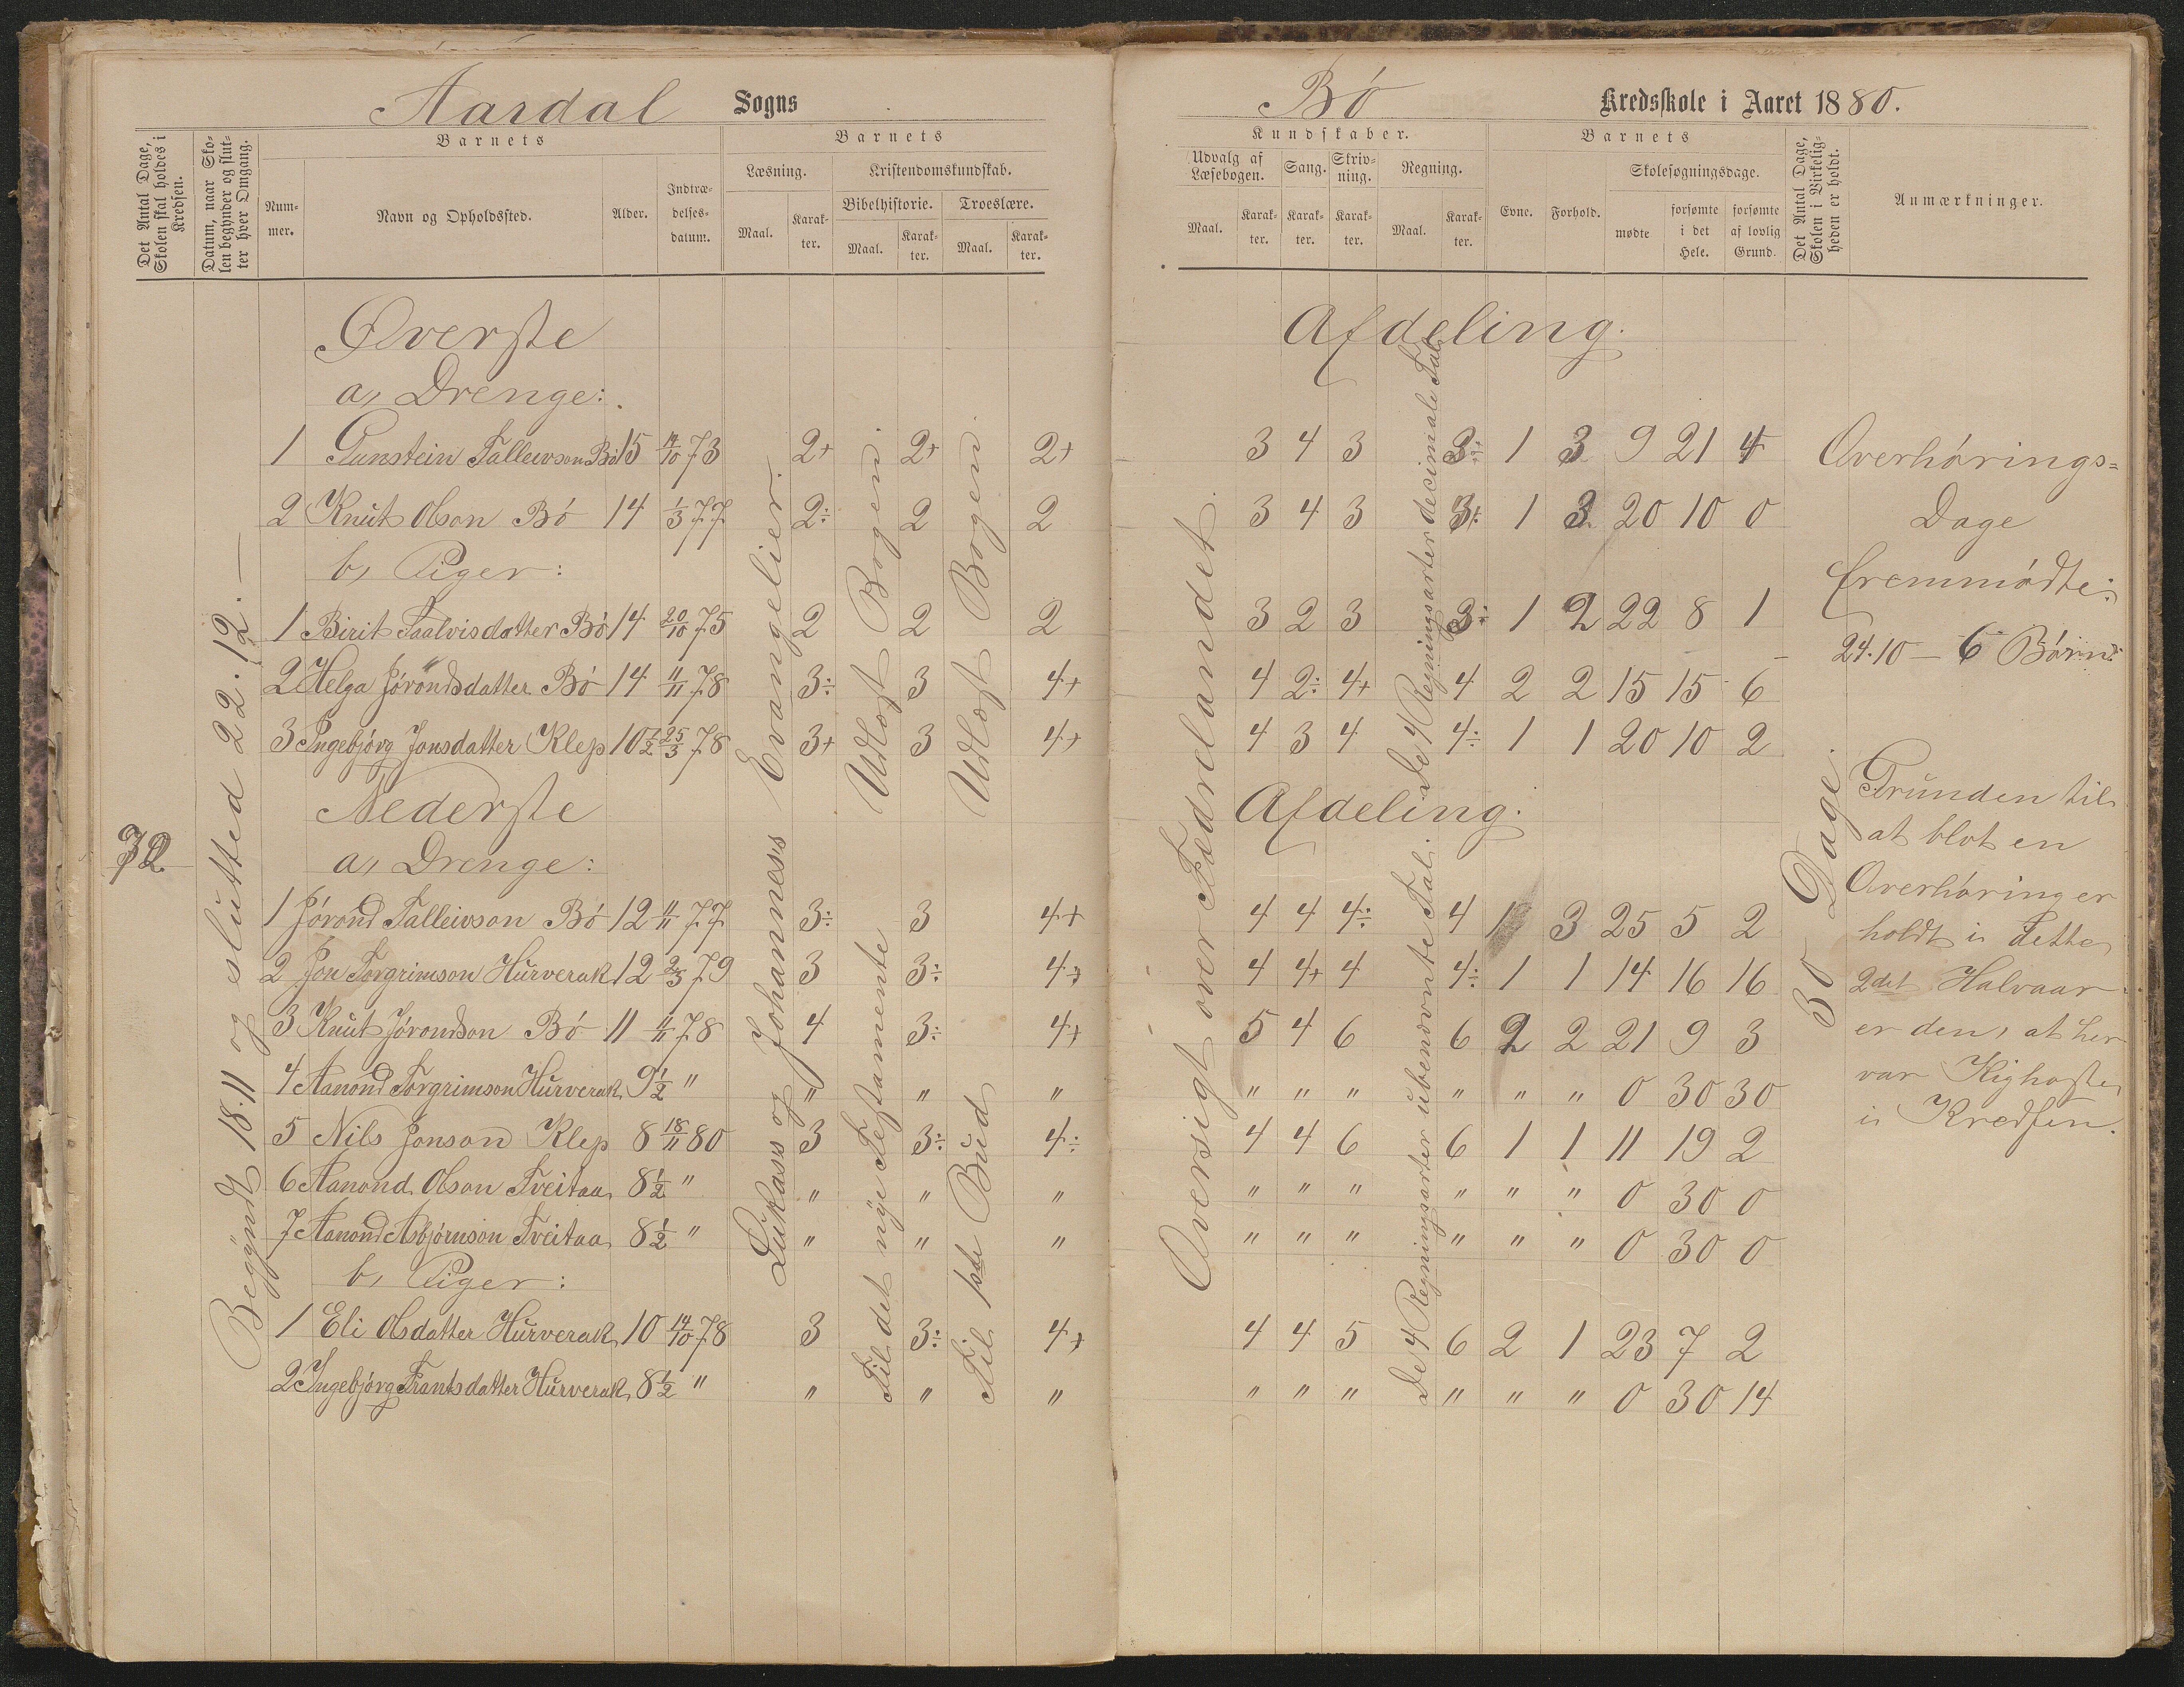 Aardal Sogns
Det Antal Dage, Skolen skal holdes i Kredsen.
Datum, naar Skolen begynder og slutter hver Omgang.
Barnets
Nummer.
Navn og Opholdssted.
Alder.
Indtrædelsesdatum.
Barnets
Læsning.
Maal.
Karakter.
Kristendomskundskab.
Bibelhistorie.
Maal.
Karakter.
Troeslære.
Maal.
Karakter.
Øverste
a, Drenge:
1 Gunstein Talleivson Bö 15 14/10 73 2+ 2+ 2+
2 Knut Olson Bö 14 1/3 77 2÷ 2 2
b, Piger:
1 Birit Taalvisdatter Bö 14 20/10 75 2 2 2
2 Helga Jöröndsdatter Bö 14 11/11 78 3÷ 3 4+
3 Ingebjörg Jonsdatter Klep 10 1/2 25/3 78 3+ 3 4+
Nederste
a, Drenge:
1 Jörönd Talleivson Bö 12 11/11 77 3÷ 3 4+
2 Jon Torgrimson Hurverak 12 2/3 79 3 3÷ 4+
3 Knut Jöröndson Bö 11 4/11 78 4 3÷ 4+
4 Aanond Torgrimson Hurverak 9 1/2 " " " "
5 Nils Jonson Klep 8 18/11 80 3 3÷ 4÷
6 Aanond Olson Tveitaa 8 1/2 " " " "
7 Aanond Asbjörnson Tveitaa 8 1/2 " " " "
b, Piger:
1 Eli Olsdatter Hurverak 10 14/10 78 3 3÷ 4+
2 Ingebjörg Frantsdatter Hurverak 8 1/2 " " " "
Begyndt 18.11 og slutted 22.12.—
Lukass og Johanness Evangelier.
Udlæst Bogen.
Til det nye Testamente
Udlæst Bogen
Til 1ste Bud
Bö Kredsskole i Aaret 1880.
Kundskaber.
Udvalg af Læsebogen.
Maal.
Karakter.
Sang.
Karakter.
Skrivning.
Karakter.
Regning.
Maal.
Karakter.
Barnets
Evne.
Forhold.
Skolesøgningsdage.
mødte
forsømte i det Hele.
forsømte af lovlig Grund.
Det Antal Dage, Skolen i Virkeligheden er holdt.
Anmærkninger.
Afdeling.
3 4 3 3÷ 1 3 9 21 4
3 4 3 3÷ 1 3 20 10 0
3 2 3 3÷ 1 2 22 8 1
4 2÷ 4+ 4 2 2 15 15 6
4 3 4 4÷ 1 1 20 10 2
Afdeling.
4 4 4÷ 4 1 3 25 5 2
4 4+ 4 4÷ 1 1 14 16 16
5 4 6 6 2 2 21 9 3
" " " " " " 0 30 30
4 4 6 6 1 1 11 19 2
" " " " " " 0 30 0
" " " " " " 0 30 0
4 4 5 6 2 1 23 7 2
" " " " " " 0 30 14
Oversigt over Fædrelandet.
De 4 Regningsarter decimale Tal.
De 4 Regningsarter ubenævnte Tal.
30 Dage.
Overhörings=
Dage
fremmödte:
24.10 — 6 Börn.
Grunden til
at blot en
Overhöring er
holdt i dette
2det Halvaar
er den, at her
var Kighoste
i Kredsen.